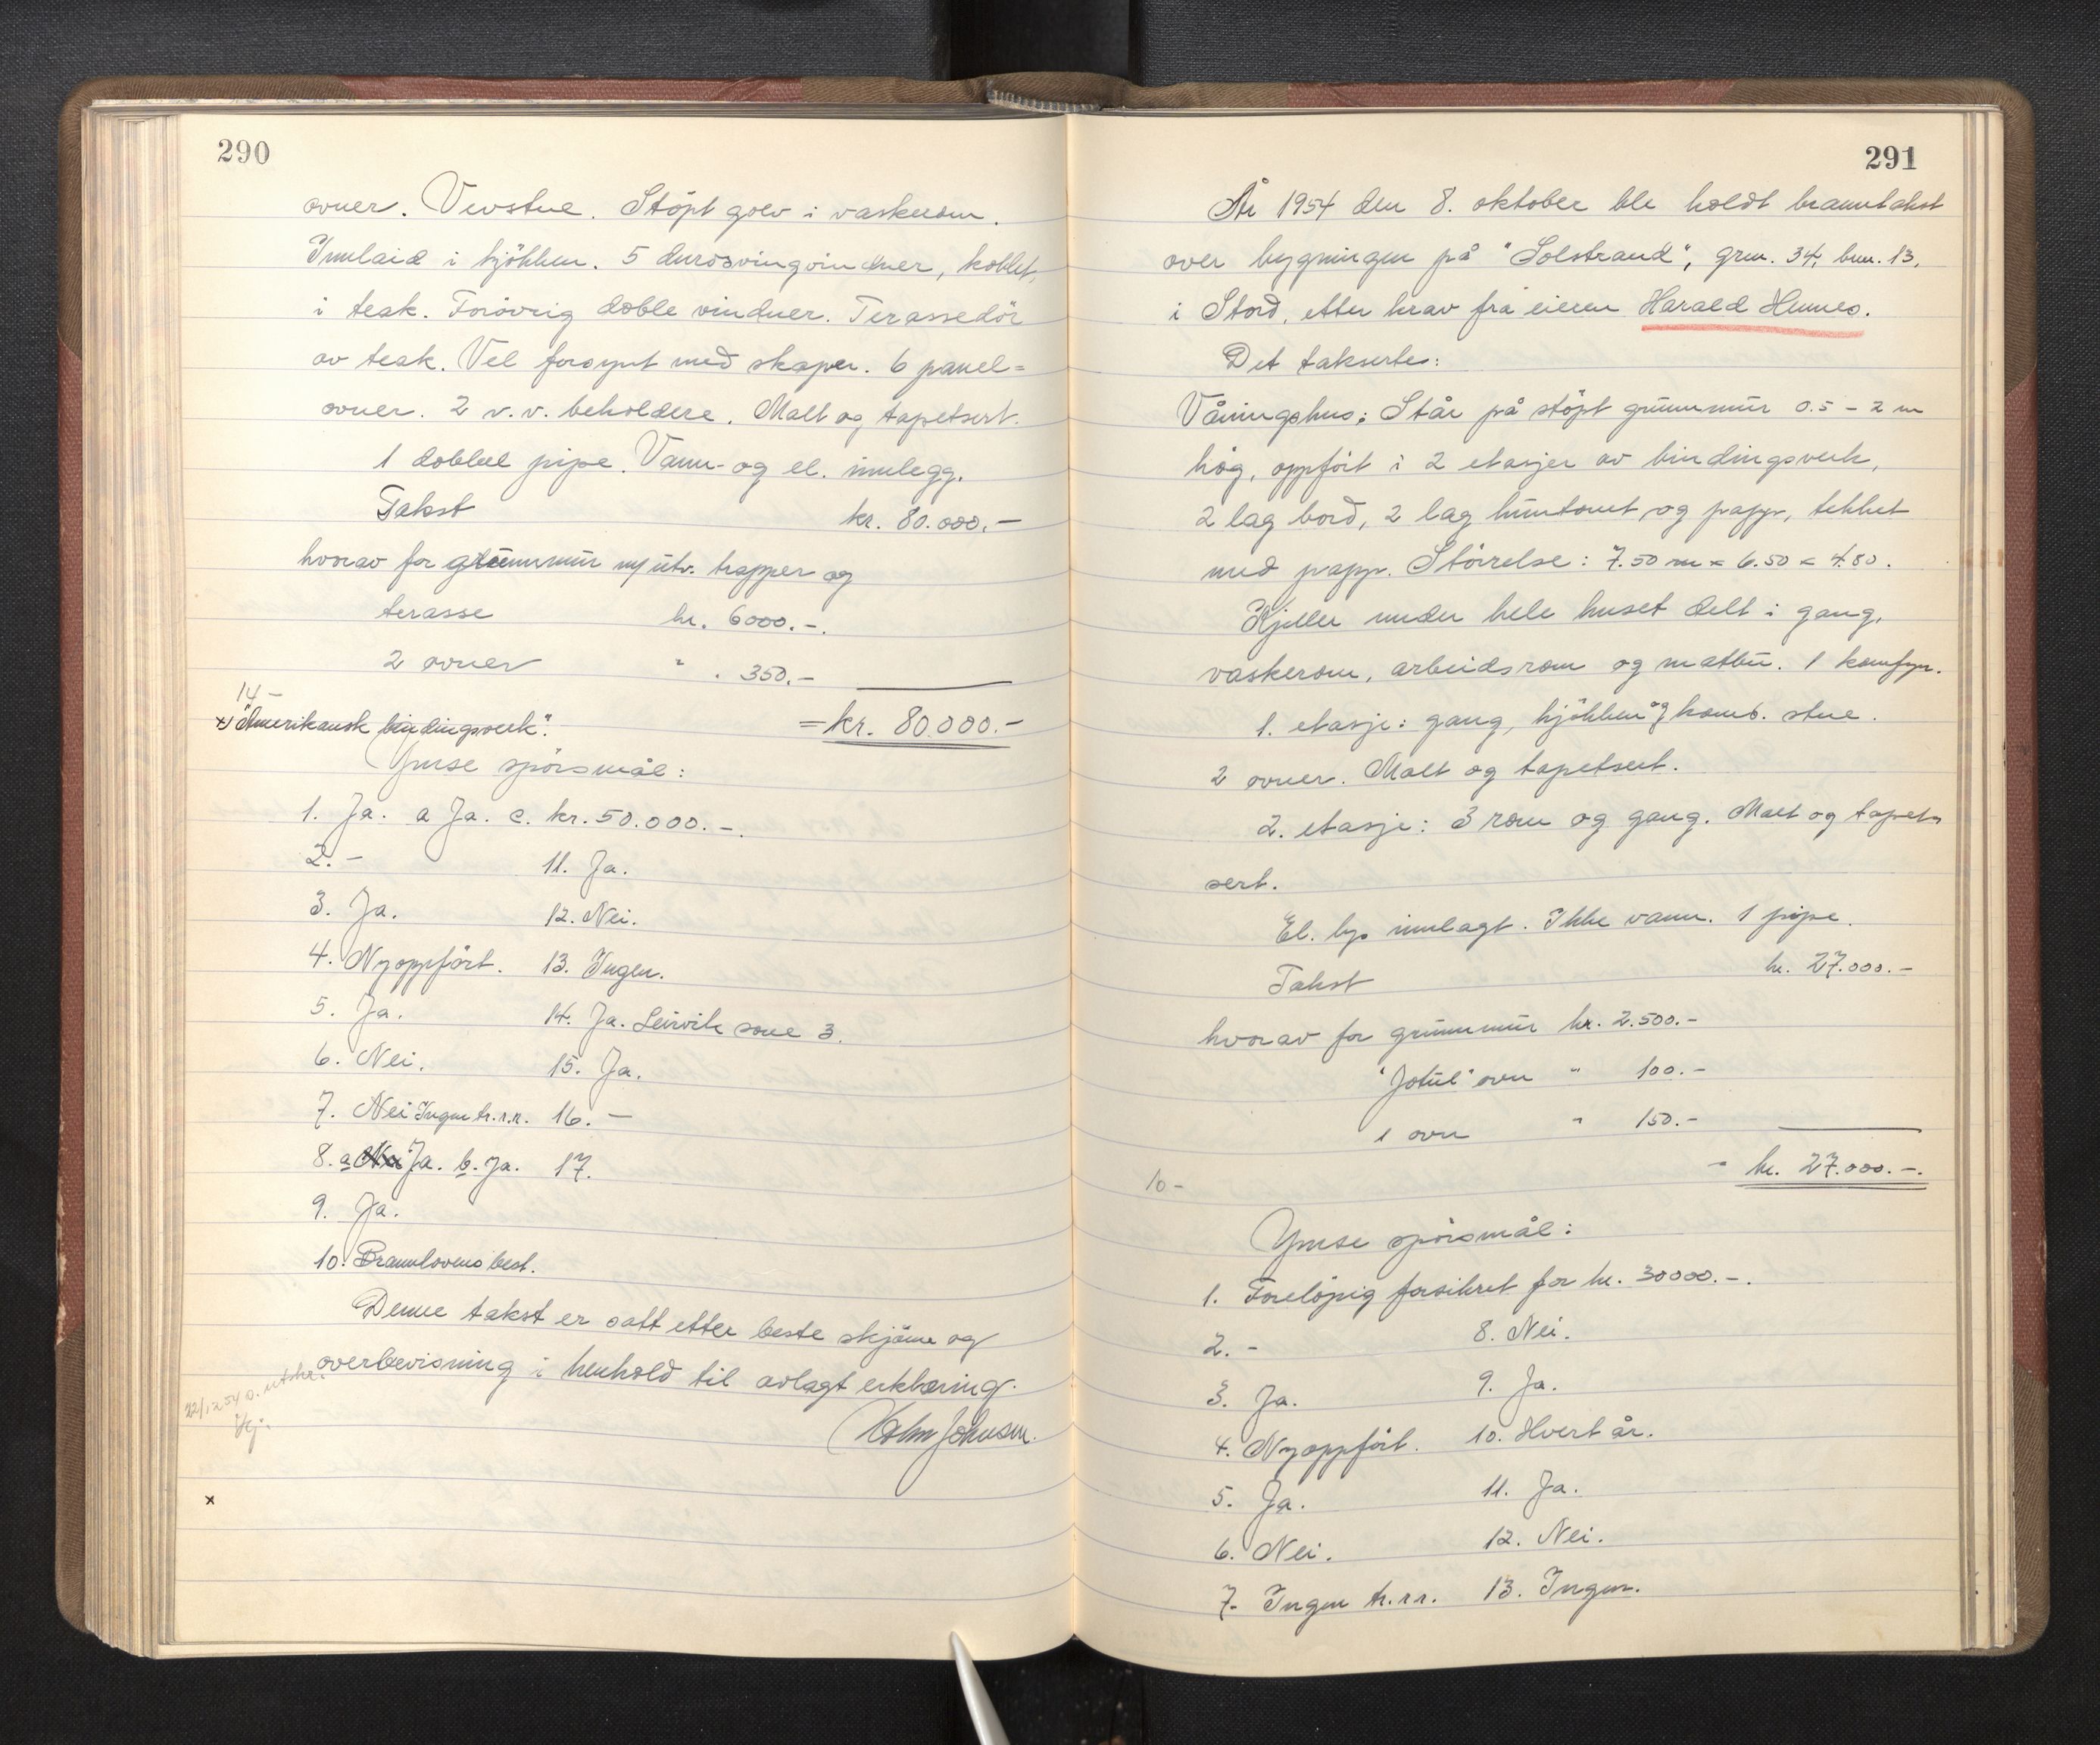 290
ovner. Vevstue. Støpt golv i vaskerom.
Innlaid i kjøkken. 5 durosvingvinduer, koblet,
i teak. Forøvrig doble vinduer. Terassedør
av teak. Vel forsynt med skaper. 6 panel=
ovner. 2 v.v. beholdere. Malt og tapetsert.
1 dobbel pipe. Vann- og el. innlegg.
Takst kr. 80.000.-
hvorav for grunnmur m/utv. trapper og
terasse kr. 6000.-.
2 ovner " . 350.-
14-
x) "Amerikansk bindingsverk". = kr. 80.000.-
Ymse spørsmål:
1. Ja. a Ja. c. kr. 50.000.-.
2. - 11. Ja.
3. Ja. 12. Nei.
4. Nyoppført. 13. Ingen.
5. Ja. 14. Ja. Leirvik sone 3.
6. Nei. 15. Ja.
7. Nei Ingen tr.r.r. 16. -
8. a Ja. b. Ja. 17.
9. Ja.
10. Brannlovens best.
Denne takst er satt etter beste skjønn og
overbevisning i henhold til avlagt erklæring.
22/12 54 o. utskr.
Johnsen.
x
291
År 1954 den 8. oktober ble holdt branntakst
over bygningen på "Solstrand", grnr. 34, bnr. 13,
i Stord, etter krav fra eieren Harald Hennes.
Det takserte:
Våningshus: Står på støpt grunnmur 0.5 - 2 m
høg, oppført i 2 etasjer av bindingsverk,
2 lag bord, 2 lag huntonit og papp, tekket
med papp. Størrelse: 7.50 m x 6.50 x 4.80.
Kjeller under hele huset delt i gang,
vaskerom, arbeidsrom og matbu. 1 komfyr.
1. etasje: gang, kjøkken og komb. stue.
2 ovner. Malt og tapetsert.
2. etasje: 3 rom og gang. Malt og tapet=
sert.
El. lys innlagt. Ikke vann. 1 pipe.
Takst kr. 27.000.-
hvorav for grunnmur kr. 2.500.-
"Jøtul" ovn " 100.-
1 ovn " 150.-
10- = kr. 27.000.-.
Ymse spørsmål:
1. Foreløpig forsikret for kr. 30000.-.
2. - 8. Nei.
3. Ja. 9. Ja.
4. Nyoppført. 10. Hvert år.
5. Ja. 11. Ja.
6. Nei. 12. Nei.
7. Ingen tr.r.r. 13. Ingen.